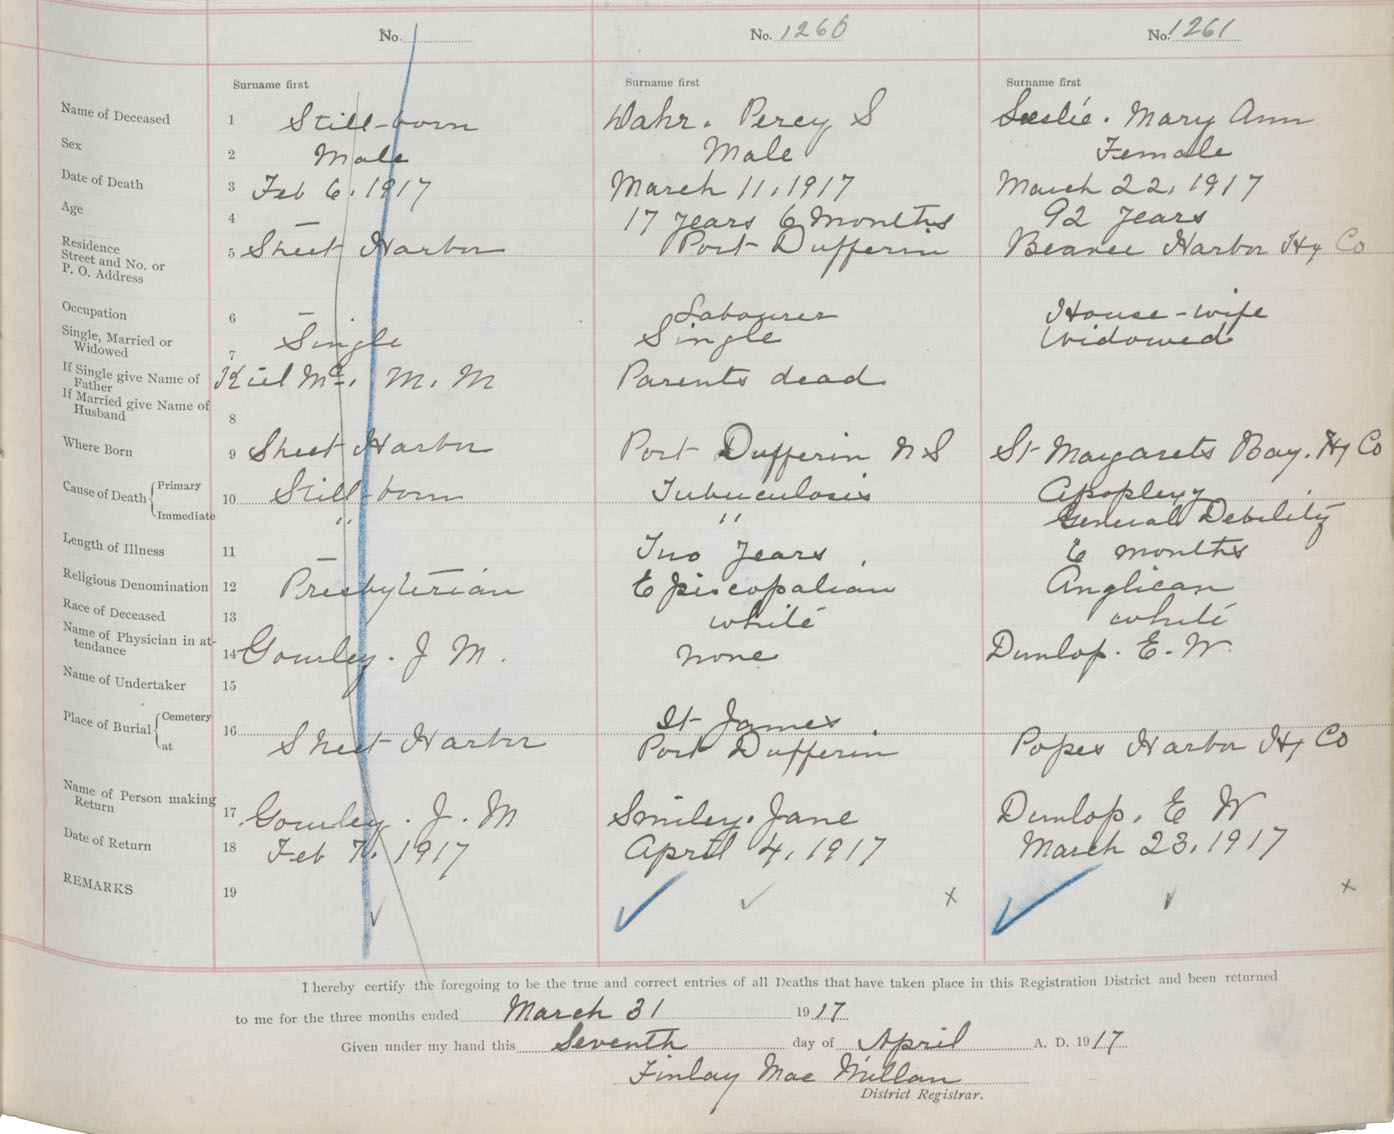 No. No. 1260 No. 1261
Surname first Surname first Surname first
Name of Deceased 1 Still-born Wahr. Percy S Leslie. Mary Ann
Sex 2 Male Male Female
Date of Death 3 Feb 6, 1917 March 11, 1917 March 22, 1917
Age 4 — 17 years 6 Months 92 years
Residence
Street and No. or
P. O. Address 5 Sheet Harbor Port Dufferin Beaver Harbor Hx Co
Occupation 6 — Labourer House-wife
Single, Married or
Widowed 7 Single Single Widowed
If Single give Name of
Father Mc. M. M Parents dead
If Married give Name of
Husband 8
Where Born 9 Sheet Harbor Port Dufferin N S St Margarets Bay. Hx Co
Cause of Death { Primary 10 Still-born Tubuculosis Apoplexy
Immediate " " General Debility
Length of Illness 11 — Two years 6 months
Religious Denomination 12 Presbyterian Episcopalian Anglican
Race of Deceased 13 white white
Name of Physician in at-
tendance 14 Gourley. J M. None Dunlop. E. W.
Name of Undertaker 15
Place of Burial { Cemetery 16 St James
at Sheet Harbor Port Dufferin Popes Harbor Hx Co
Name of Person making
Return 17 Gourley. J. M Smiley. Jane Dunlop. E W
Date of Return 18 Feb 7, 1917 April 4, 1917 March 23, 1917
REMARKS 19 ✓ ✓ ✓ x ✓ ✓ x
I hereby certify the foregoing to be the true and correct entries of all Deaths that have taken place in this Registration District and been returned
to me for the three months ended March 31 1917
Given under my hand this Seventh day of April A. D. 1917
Finlay Mac Millan
District Registrar.